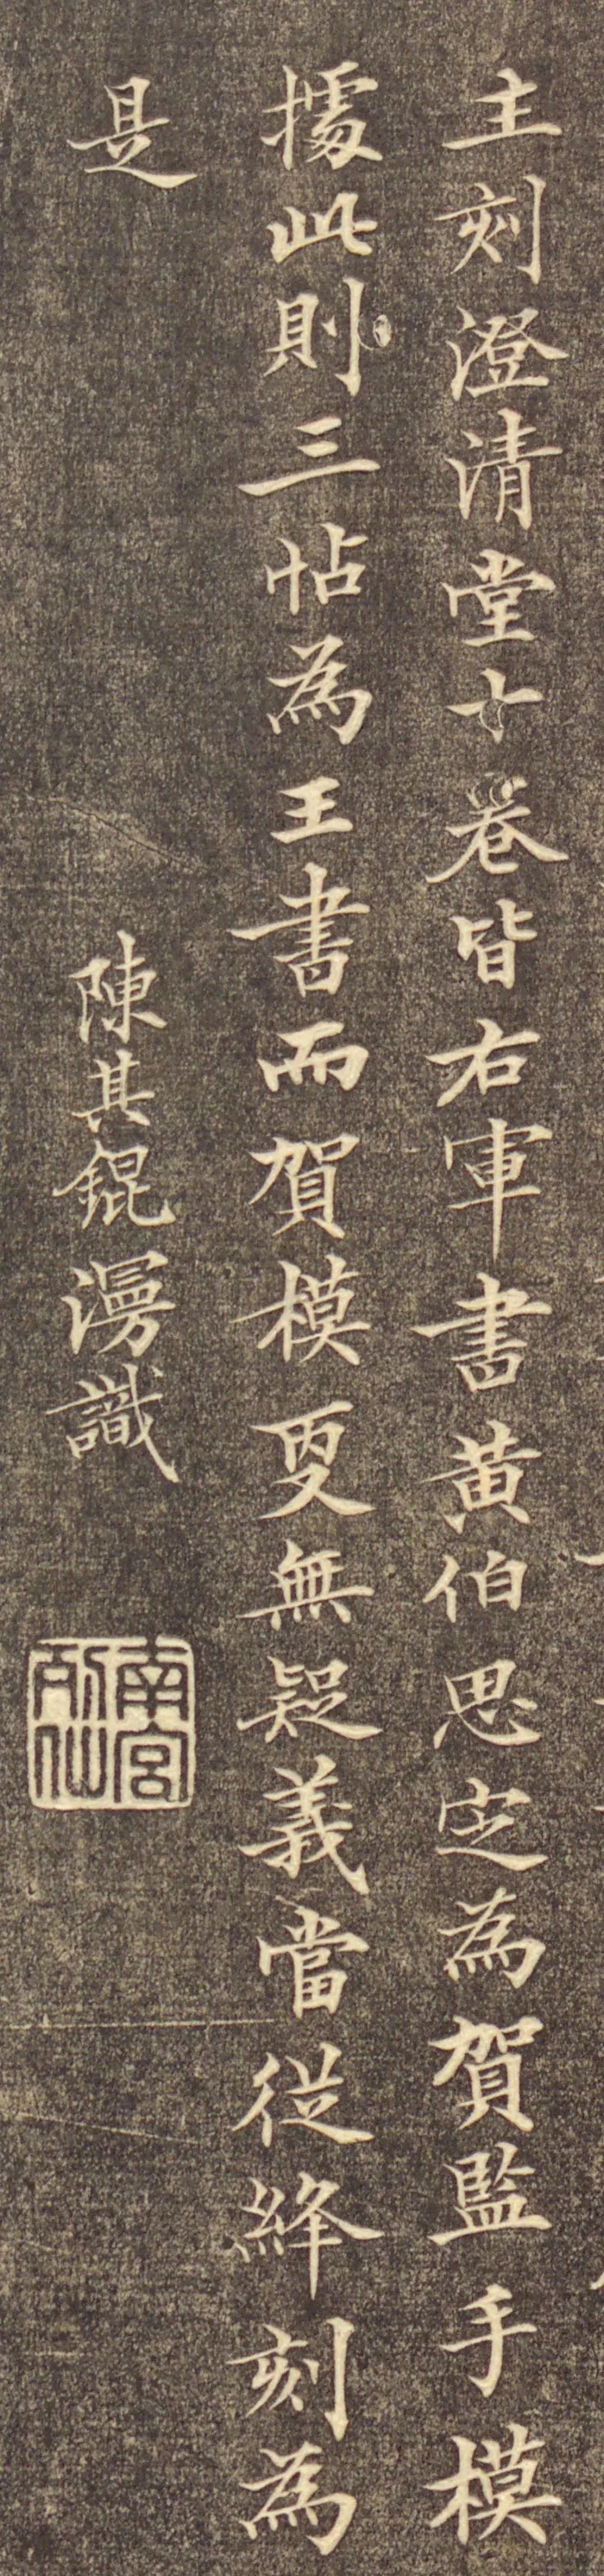 主刻澄清堂十卷皆右軍書黄伯思定為賀監手模
據此則三帖為王書而賀模更無疑義當從絳刻為
是
陳其錕漫識
南宮
仙